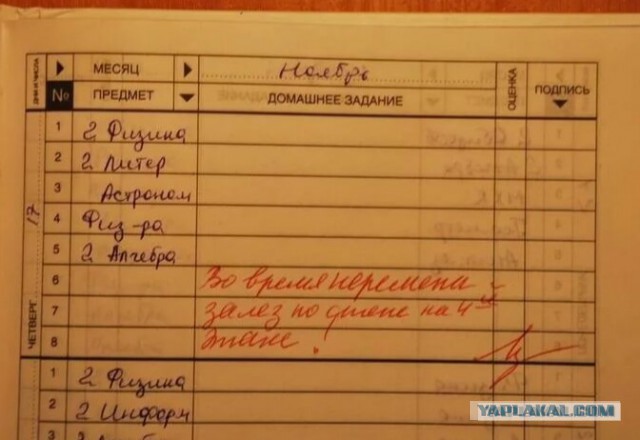 ДНИ И ЧИСЛА МЕСЯЦ Ноябрь ОЦЕНКА ПОДПИСЬ
№ ПРЕДМЕТ ДОМАШНЕЕ ЗАДАНИЕ
1 2 Физика
2 2 Литер
3 Астроном
4 Физ-ра
5 2 Алгебра
6 Во время перемены
7 залез по стене на 4ый
8 этаж!
ЧЕТВЕРГ 17
1 2 Физика
2 2 Информ
3
YAPLAKAL.COM